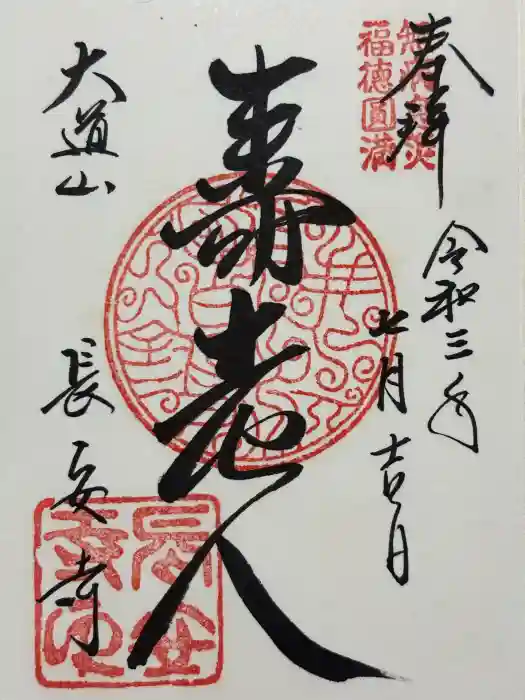 奉拝
無病息災
福徳圓満
令和三年
七月吉日
壽老人
大道山
長安寺